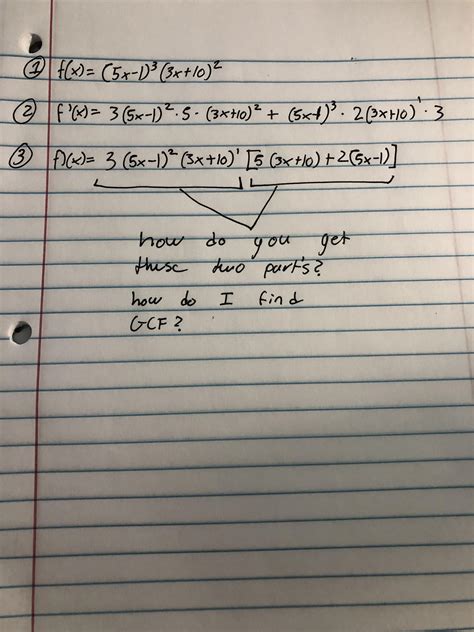 ① f(x) = (5x-1)³ (3x+10)²
② f'(x) = 3(5x-1)² · 5 · (3x+10)² + (5x-1)³ · 2(3x+10)¹ · 3
③ f'(x) = 3 (5x-1)² (3x+10)¹ [5 (3x+10) + 2(5x-1)]
how do you get
these two part's?
how do I find
GCF?